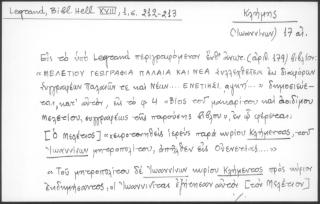 Legrand, Bibl. Hell. XVIII, 1, σ. 212-213
Κλήμης
(Ἰωαννίνων) 17 αἰ.
Εἰς τὸ ὑπὸ Legrand περιγραφόμενον ἐνθ' ἀνωτ. (ἀριθ. 179) βιβλίον:
«ΜΕΛΕΤΙΟΥ ΓΕΩΓΡΑΦΙΑ ΠΑΛΑΙΑ ΚΑΙ ΝΕΑ συλλεχθεῖσα ἐκ διαφόρων
συγγραφέων Παλαιῶν τε καὶ Νέων... ΕΝΕΤΙΗΣΙ, αψκη΄... » δημοσιεύε-
ται, κατ' αὐτόν, εἰς τὸ φ. 4 «Βίος τοῦ μακαρίτου καὶ ἀοιδίμου
Μελετίου, συγγραφέως τῆς παρούσης βίβλου», ἐν ᾧ φέρεται:
[ὁ Μελέτιος] «χειροτονηθεὶς ἱερεὺς παρὰ κυρίου Κλήμεντος τοῦ
Ἰωαννίνων μητροπολίτου, ἀπῆλθεν εἰς Οὐενετίας.... »
« Τοῦ μητροπολίτου δὲ Ἰωαννίνων κυρίου Κλήμεντος πρὸς κύριον
ἐκδημήσαντος, οἱ Ἰωαννινῖται ἐζήτησαν αὐτὸν [τὸν Μελέτιον]